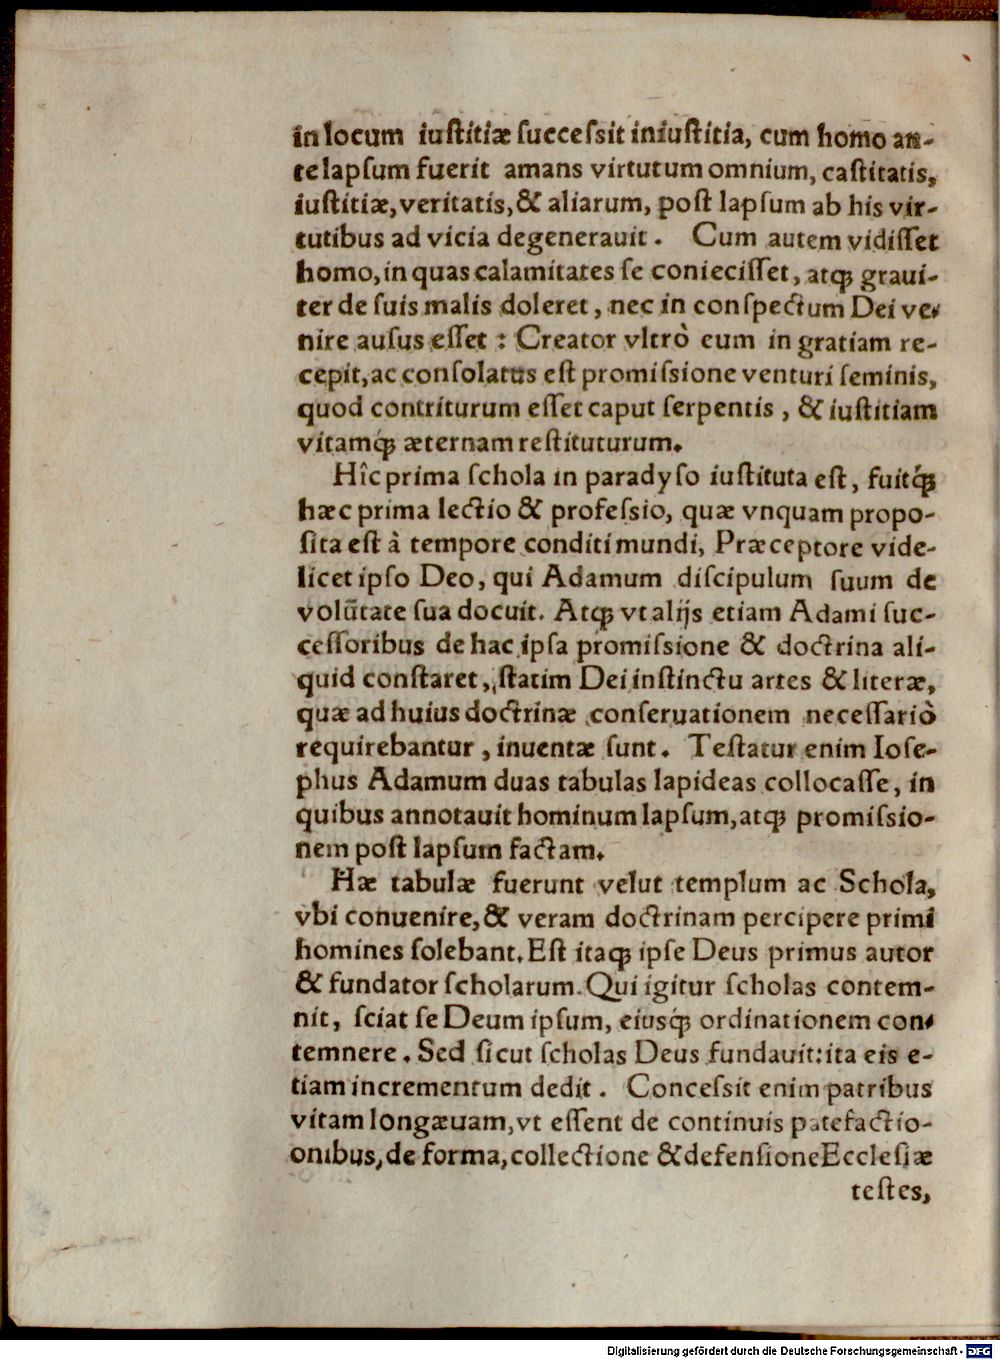 in locum iuſtitiæ ſucceſsit iniuſtitia, cum homo an-
te lapſum fuerit amans virtutum omnium, caſtitatis,
iuſtitiæ, veritatis, & aliarum, poſt lapſum ab his vir-
tutibus ad vicia degenerauit. Cum autem vidiſſet
homo, in quas calamitates ſe conieciſſet, atq́ꝫ graui-
ter de ſuis malis doleret, nec in conſpectum Dei ve-
nire auſus eſſet : Creator vltrò eum in gratiam re-
cepit, ac conſolatus eſt promiſsione venturi ſeminis,
quod contriturum eſſet caput ſerpentis, & iuſtitiam
vitamq́ꝫ æternam reſtituturum.
Hîc prima ſchola in paradyſo iuſtituta eſt, fuitq́ꝫ
hæc prima lectio & profeſsio, quæ vnquam propo-
ſita eſt à tempore conditi mundi, Præceptore vide-
licet ipſo Deo, qui Adamum diſcipulum ſuum de
volūtate ſua docuit. Atqꝫ vt alijs etiam Adami ſuc-
ceſſoribus de hac ipſa promiſsione & doctrina ali-
quid conſtaret, ſtatim Dei inſtinctu artes & literæ,
quæ ad huius doctrinæ conſeruationem neceſſariò
requirebantur, inuentæ ſunt. Teſtatur enim Ioſe-
phus Adamum duas tabulas lapideas collocaſſe, in
quibus annotauit hominum lapſum, atqꝫ promiſsio-
nem poſt lapſum factam.
Hæ tabulæ fuerunt velut templum ac Schola,
vbi conuenire, & veram doctrinam percipere primi
homines ſolebant. Eſt itaqꝫ ipſe Deus primus autor
& fundator ſcholarum. Qui igitur ſcholas contem-
nit, ſciat ſe Deum ipſum, eiusq́ꝫ ordinationem con-
temnere. Sed ſicut ſcholas Deus fundauit: ita eis e-
tiam incrementum dedit. Conceſsit enim patribus
vitam longæuam, vt eſſent de continuis patefactio-
onibus, de forma, collectione & defenſione Eccleſiæ
teſtes,
Digitalisierung gefördert durch die Deutsche Forschungsgemeinschaft - DFG